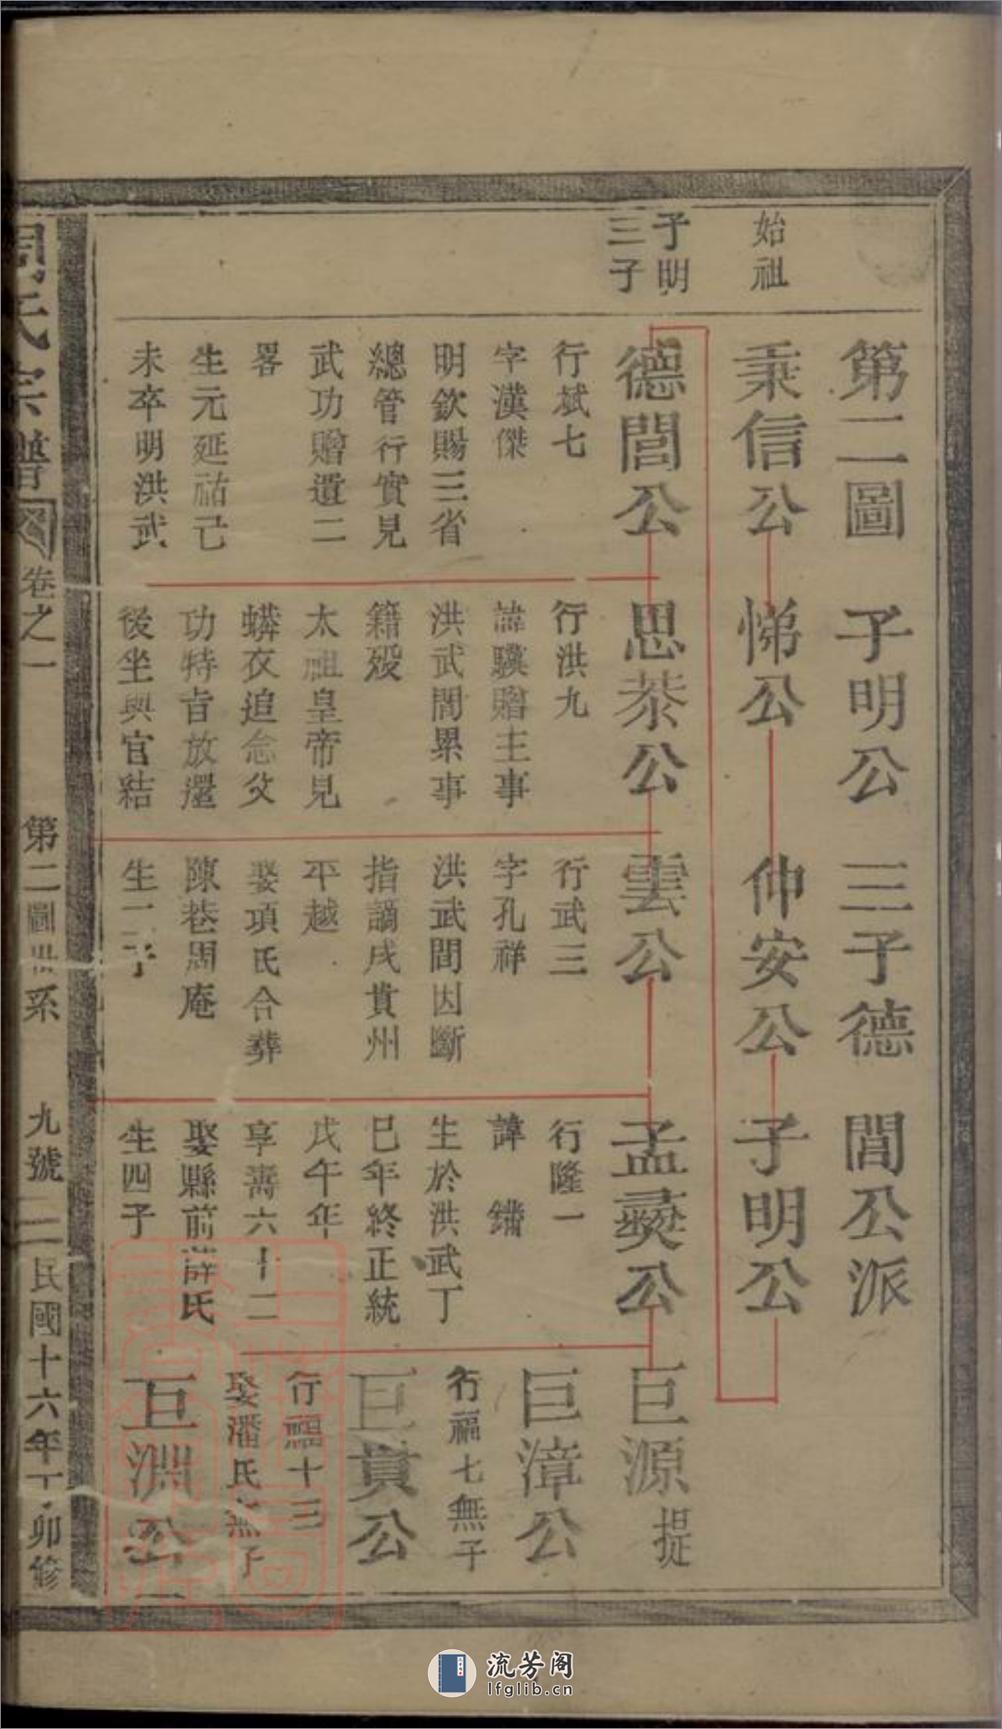 第二圖 子明公 三子德 閭公派
始祖
秉信公 悌公 仲安公 子明公
子明
三子
德閭公
行斌七
字漢傑
明欽賜三省
總管行實見
武功贈遺二
畧
生元延祐己
未卒明洪武
思恭公
行洪九
諱驥贈主事
洪武間累事
籍歿
太祖皇帝見
蟒衣追念父
功特旨放還
後坐與官結
雲公
行武三
字孔祥
洪武間因斷
指謫戍貴州
平越
娶項氏合葬
陳巷周庵
生二子
孟㷼公
行隆一
諱鏽
生於洪武丁
巳年終正統
戊午年
享壽六十二
娶縣前薛氏
生四子
巨源 提
巨漳公
行福七無子
巨貫公
行福十三
娶潘氏無子
巨淵公
周氏宗譜 卷之一 第二圖世系 九號 二 民國十六年丁卯修
流芳阁
lfglib.cn